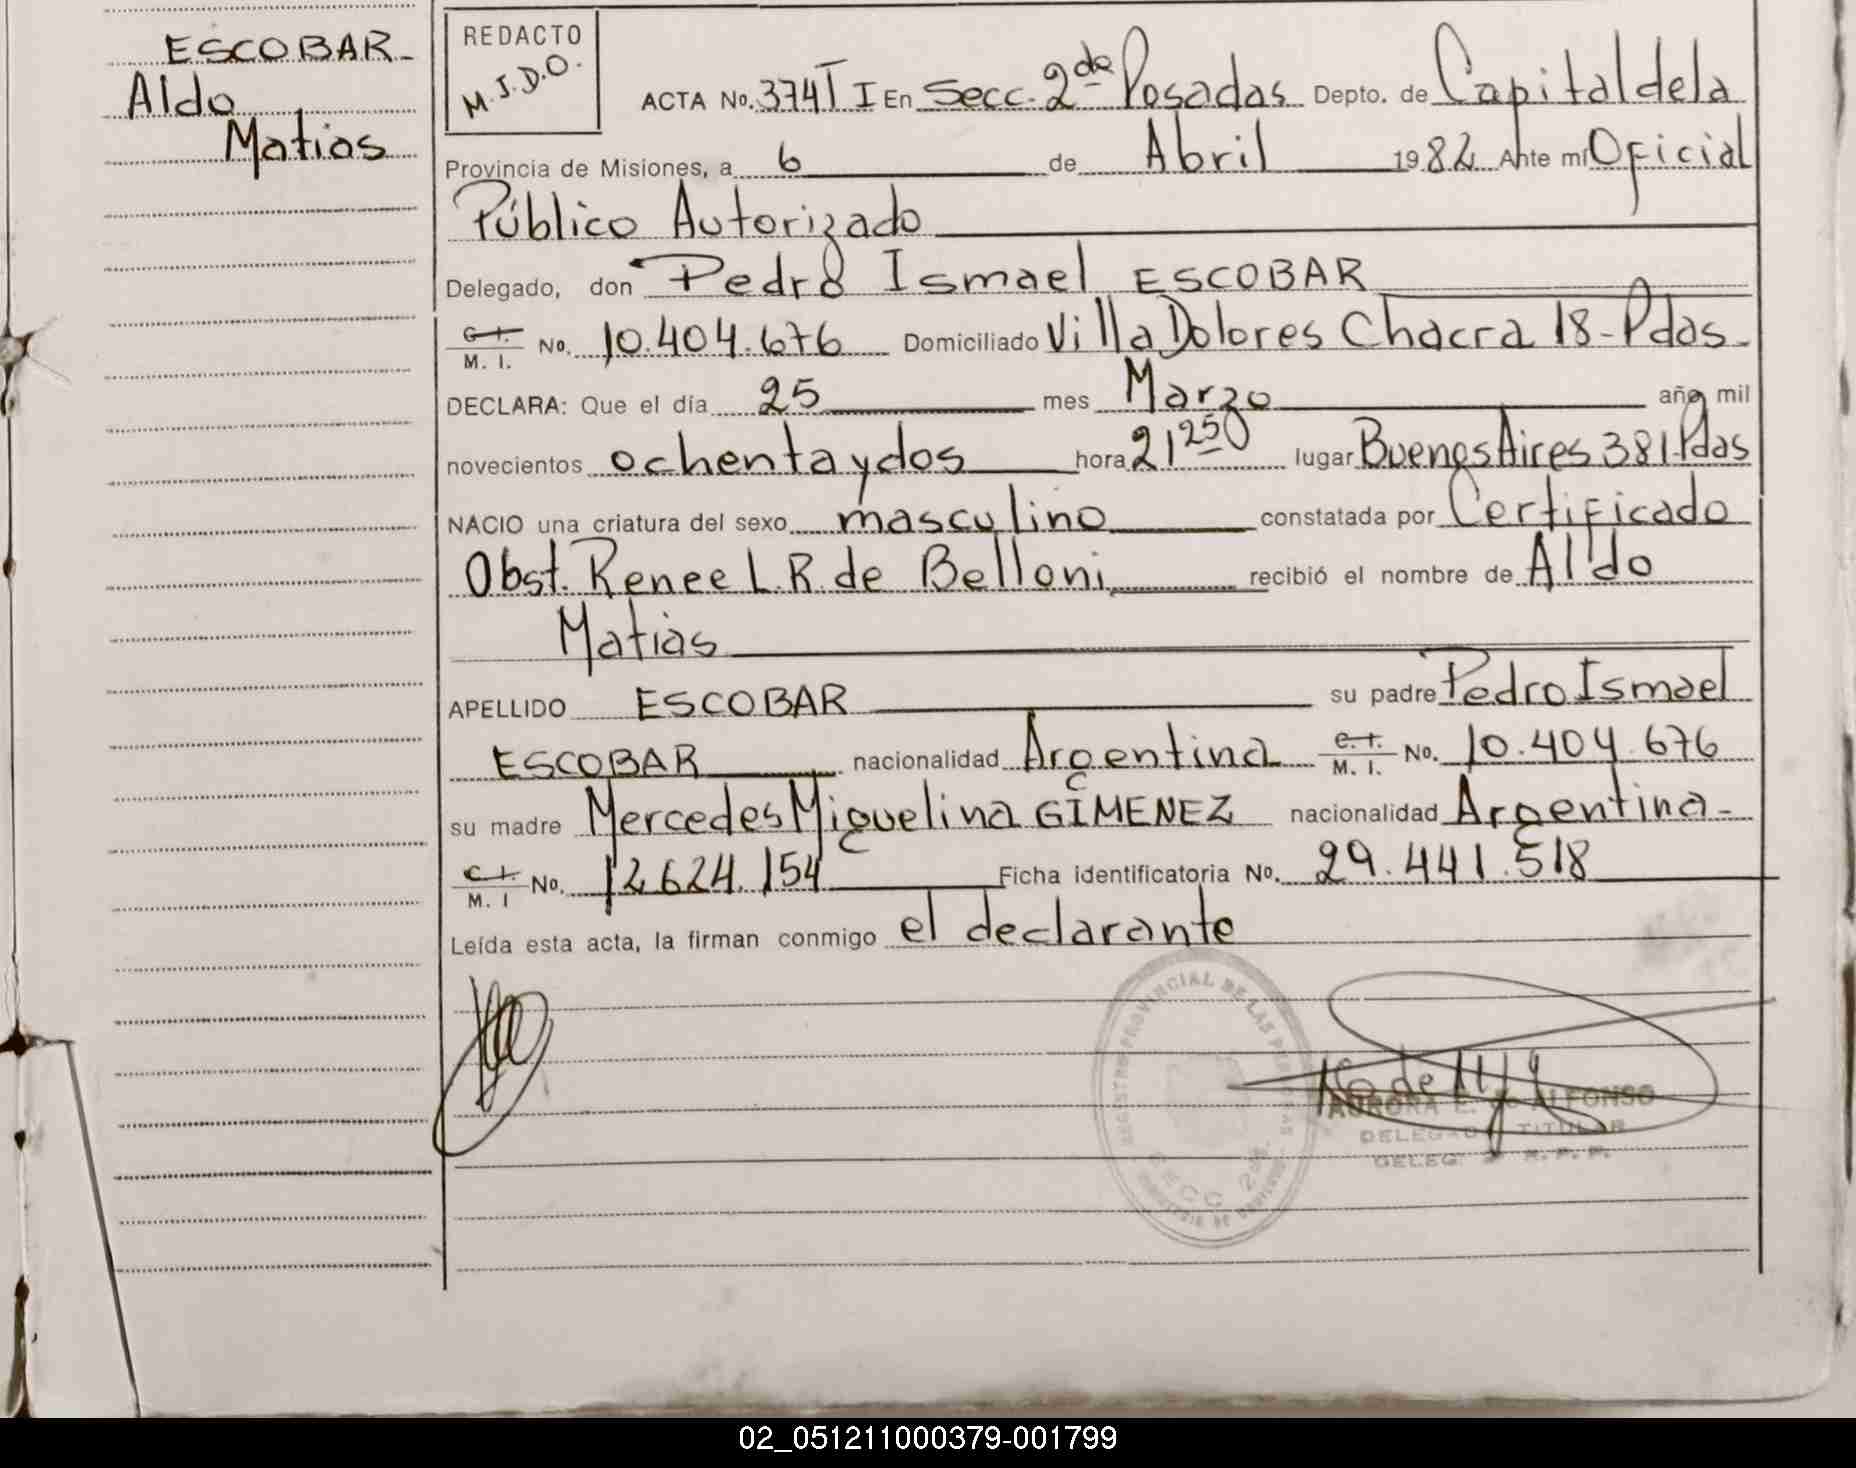 ESCOBAR-
Aldo
Matias
REDACTO
M.J.D.O.
ACTA No. 374 T I En Secc. 2da Posadas Depto. de Capital de la
Provincia de Misiones, a 6 de Abril 1982 Ante mí Oficial
Público Autorizado
Delegado, don Pedro Ismael ESCOBAR
C. I. M. I. No. 10.404.676 Domiciliado Villa Dolores Chacra 18-Pdas-
DECLARA: Que el día 25 mes Marzo año mil
novecientos ochenta y dos hora 21 250 lugar Buenos Aires 381 Pdas
NACIO una criatura del sexo masculino constatada por Certificado
Obst. Renee L. R. de Belloni, recibió el nombre de Aldo
Matias
APELLIDO ESCOBAR su padre Pedro Ismael
ESCOBAR nacionalidad Argentina C. I. M. I. No. 10.404.676
su madre Mercedes Miguelina GIMENEZ nacionalidad Argentina-
C. I. M. I No. 12.624.154 Ficha identificatoria No. 29.441.518
Leída esta acta, la firman conmigo el declarante
REGISTRO PROVINCIAL DE LAS
SECC. 2da.
AURORA E. de ALFONSO
DELEGADO TITULAR
DELEG. R. P. P.
02_051211000379-001799